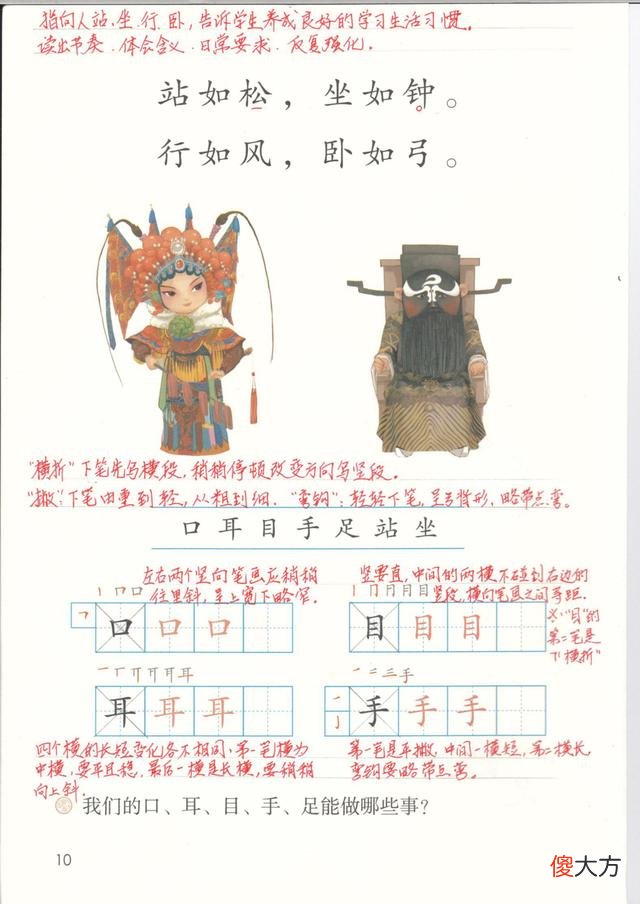 指向人站、坐、行、卧,告诉学生养成良好的学习生活习惯。
读出节奏、体会含义、日常要求、反复强化。
站如松,坐如钟。
行如风,卧如弓。
“横折”下笔先写横段,稍稍停顿改变方向写竖段。
“撇”:下笔由重到轻,从粗到细.“弯钩”:轻轻下笔,呈弓背形,略带点弯。
口耳目手足站坐
左右两个竖向笔画应稍稍
往里斜,呈上宽下略窄.
竖要直,中间的两横不碰到右边的
竖段,横向笔画之间等距.
丨 𠃍 口
丨 冂 冃 月 目
㇕ 口 口 口
目 目 目
※“目”的
第二笔是
“横折”
一 丅 丌 F 耳 耳
一 二 三 手
耳 耳 耳
㇒ 亅 手 手 手
四个横的长短变化各不相同,第一笔横为
中横,要平且稳,最后一横是长横,要稍稍
向上斜.
第一笔是平撇,中间一横短,第二横长
弯钩要略带点弯。
我们的口、耳、目、手、足能做哪些事?
10
傻大方